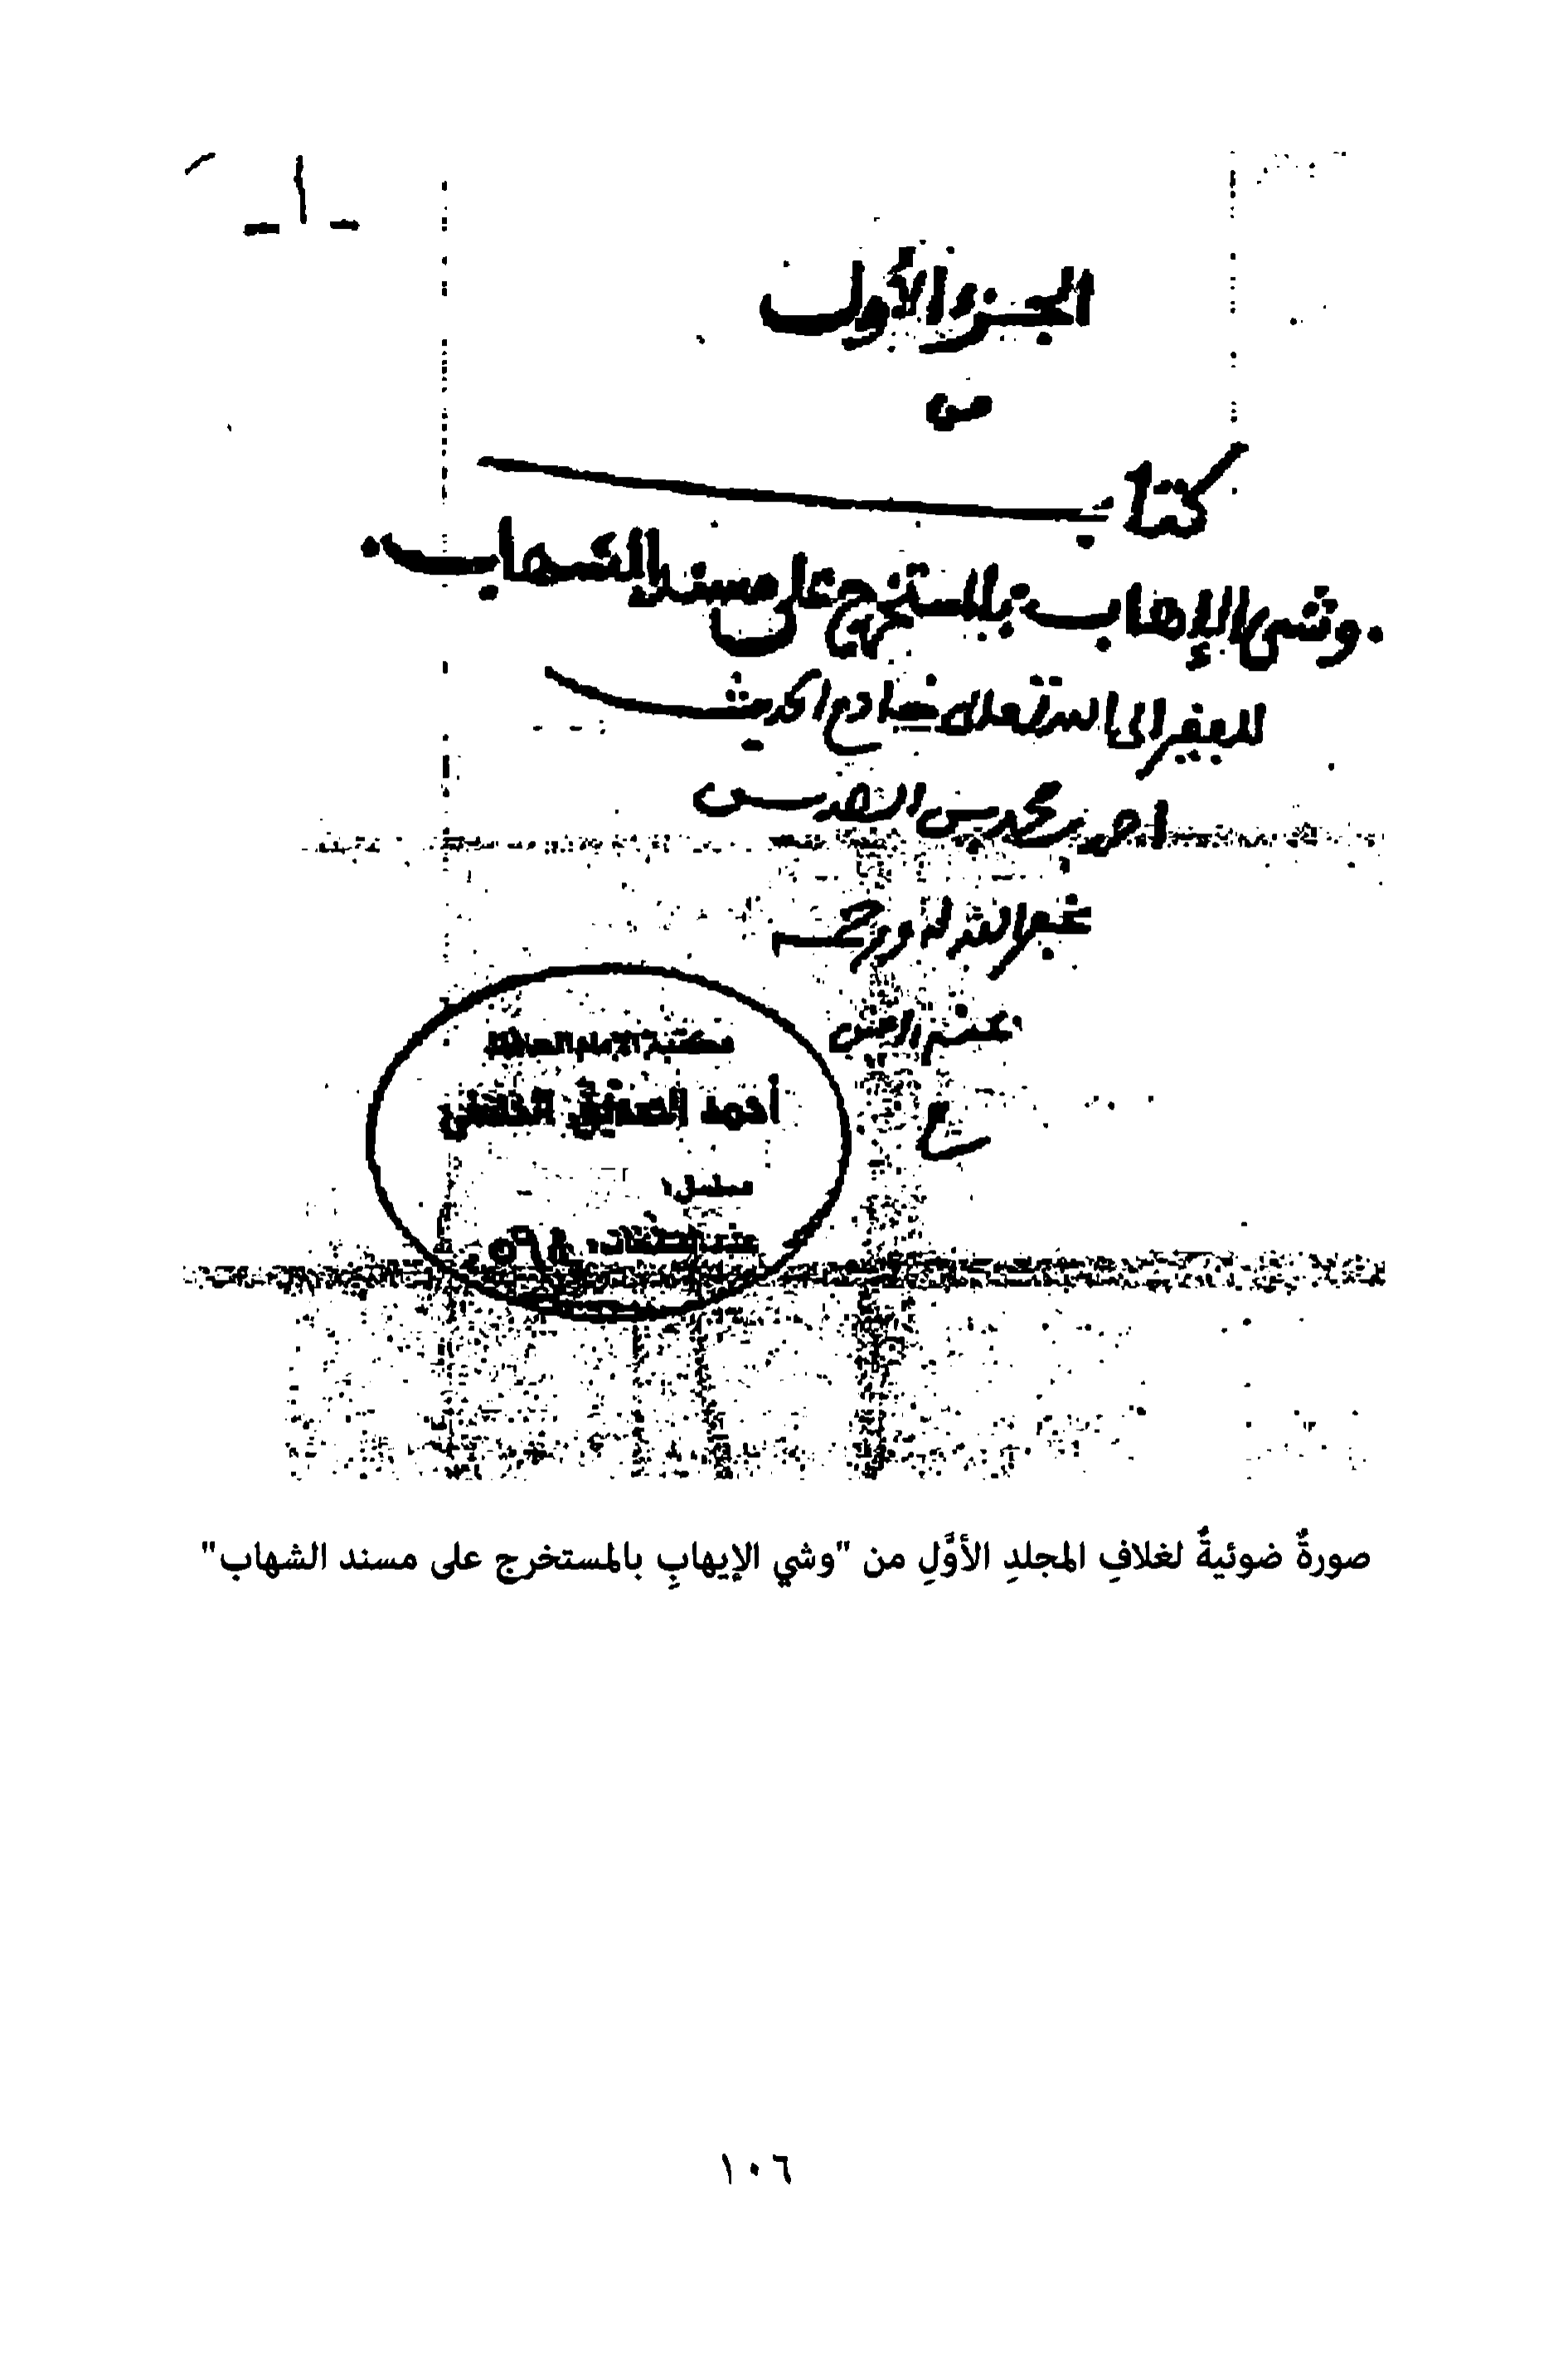 -١-
الجزء الأول
من
كتاب
وشى الإهاب بالمستخرج على مسند الشهاب
للفقير الى الله تعالى خادم الحديث
احمد بن محمد بن الصديق
غفر الله له ورحمه
بمنه
مكتبة الإمام الحافظ
أحمد الصديق
مسلسل:
عدد الصفحات:
صورةٌ ضوئيةٌ لغلافِ المجلدِ الأوَّلِ من "وشي الإيهابِ بالمستخرج على مسند الشهاب"
١٠٦